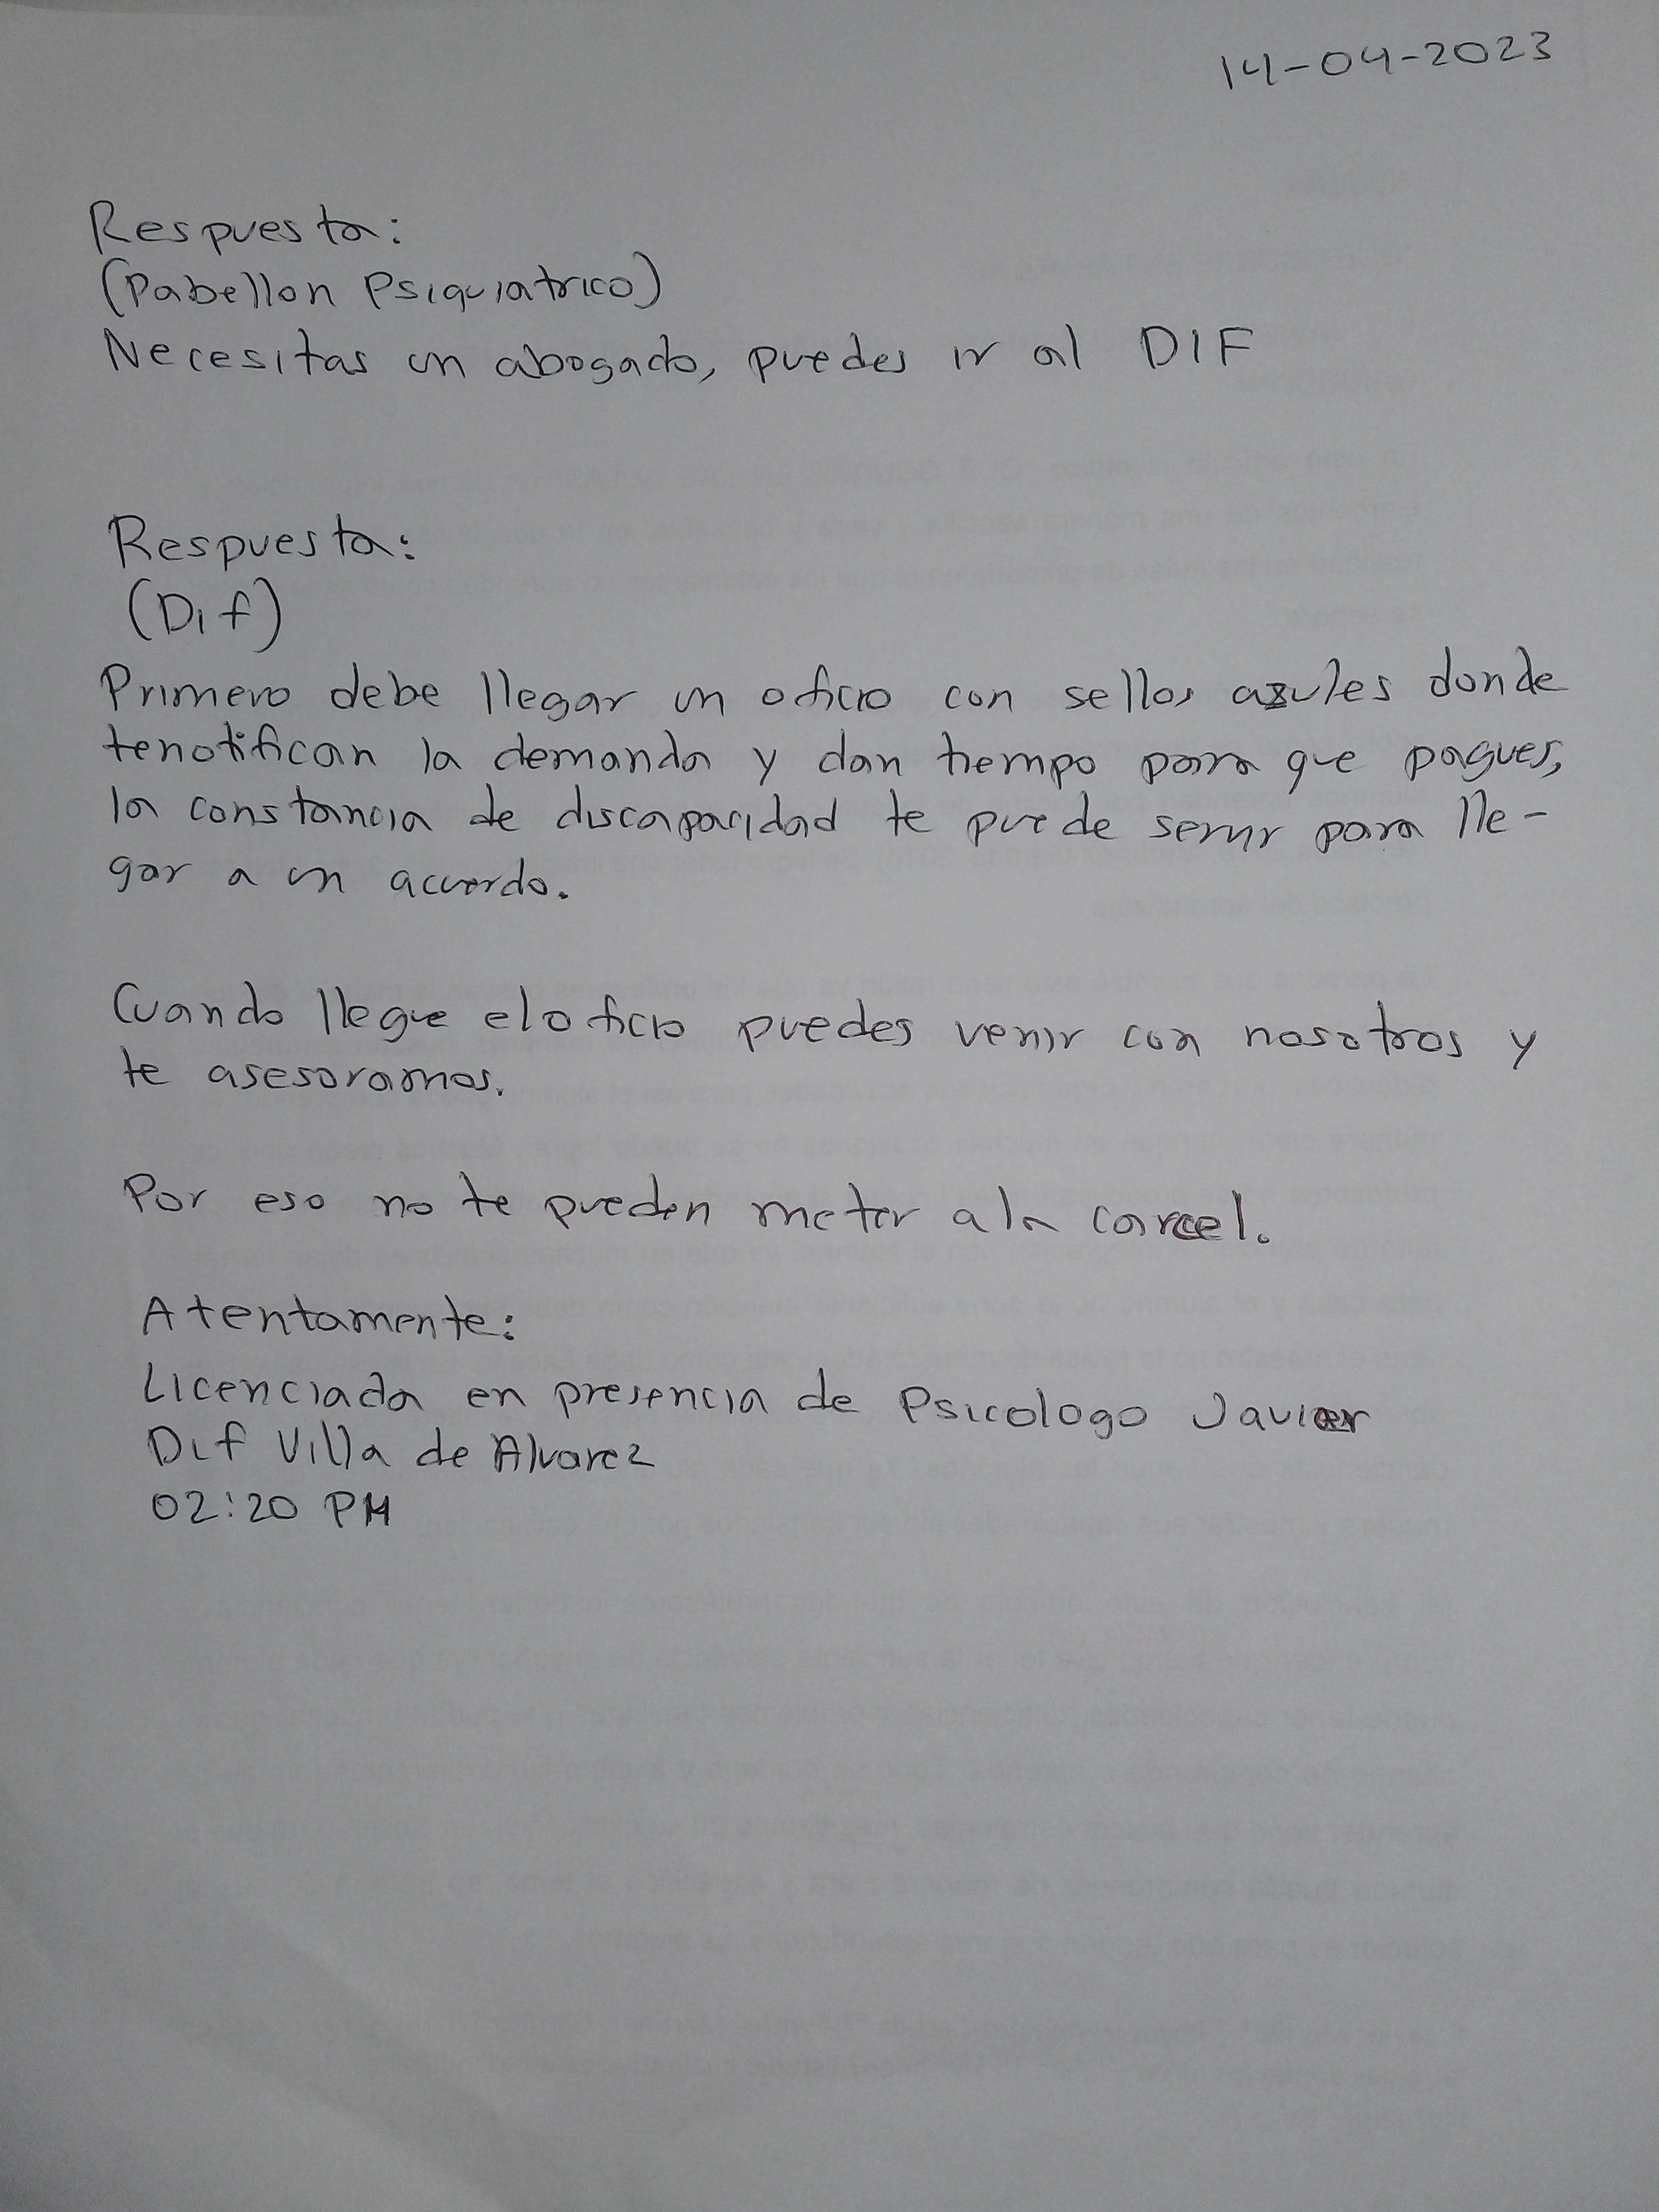 14-04-2023
Respuesta:
(Pabellon Psiquiatrico)
Necesitas un abogado, puedes ir al DIF
Respuesta:
(Dif)
Primero debe llegar un oficio con sellos azules donde
tenotifican la demanda y dan tiempo para que pagues,
la constancia de discapacidad te puede servir para lle-
gar a un acuerdo.
Cuando llegue el oficio puedes venir con nosotros y
te asesoramos.
Por eso no te pueden meter a la carcel.
Atentamente:
Licenciada en presencia de Psicologo Javier
Dif Villa de Alvarez
02:20 PM